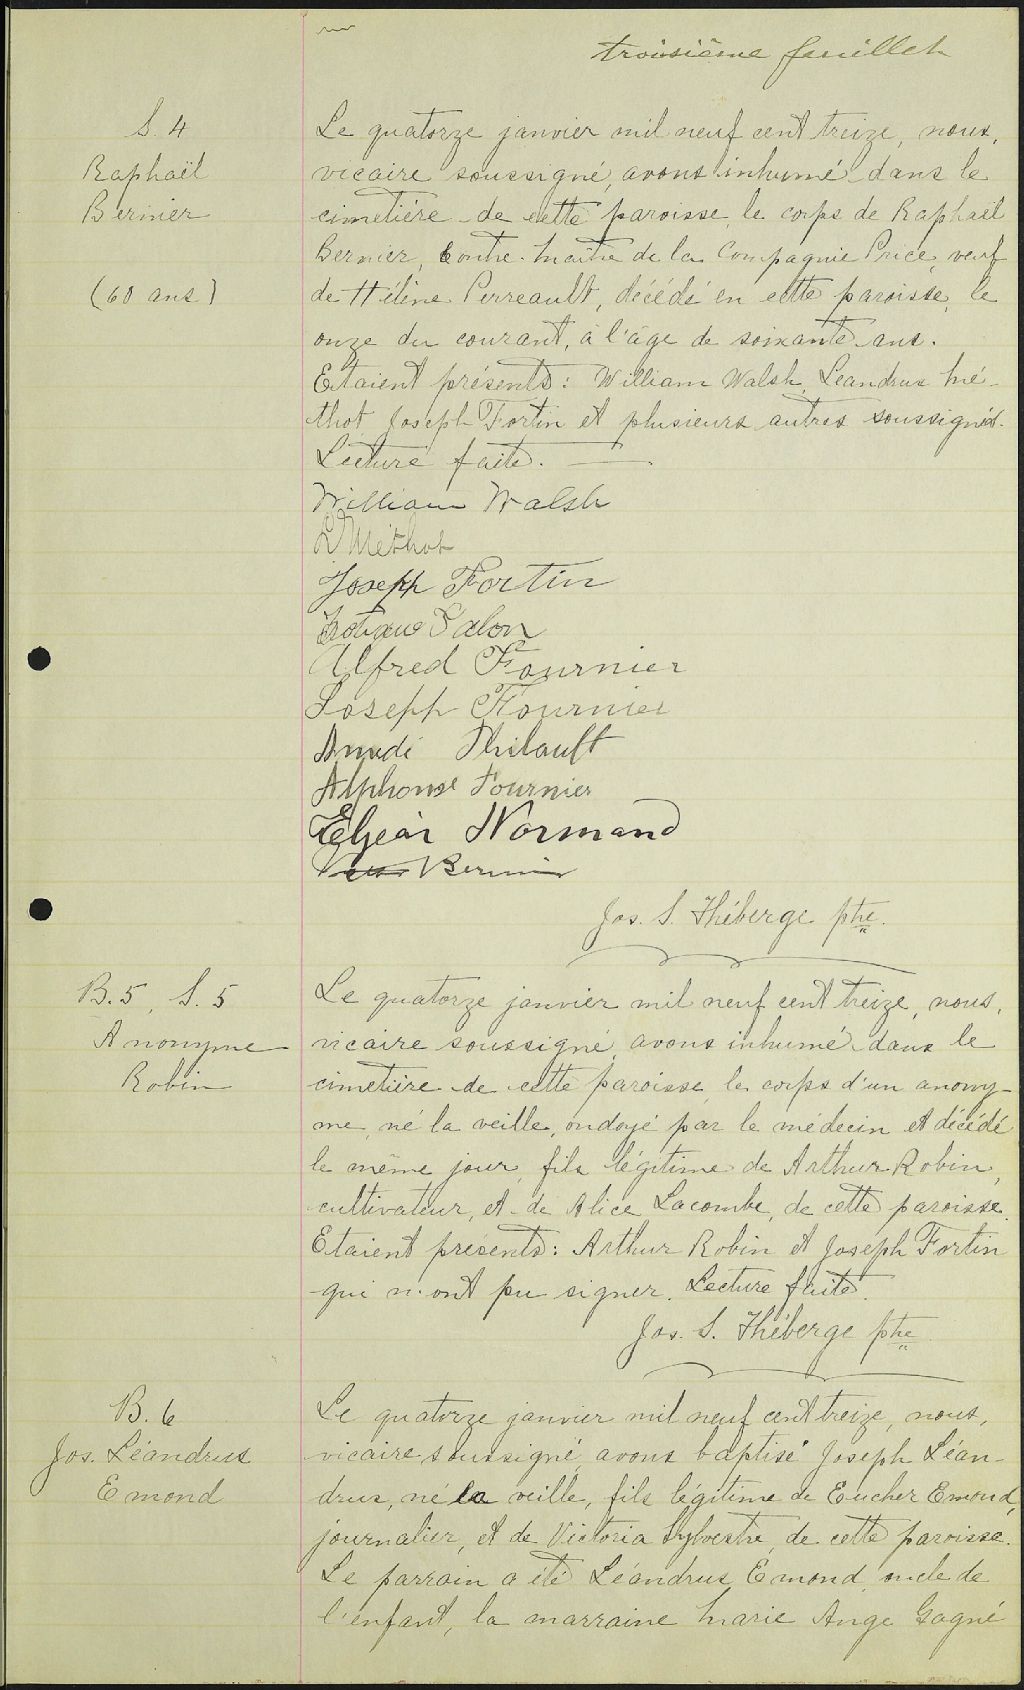 troisième feuillet
S. 4
Raphaël
Bernier
(60 ans)
Le quatorze janvier mil neuf cent treize, nous,
vicaire soussigné, avons inhumé dans le
cimetière de cette paroisse le corps de Raphaël
Bernier, contre-maître de la Compagnie Price, veuf
de Hélène Perreault, décédé en cette paroisse, le
onze du courant, à l'âge de soixante ans.
Etaient présents: William Walsh, Leandrus Mé-
thot, Joseph Fortin et plusieurs autres soussignés.
Lecture faite.
William Walsh
L Méthot
Joseph Fortin
Talon
Alfred Fournier
Joseph Fournier
Amedi Thibault
Alphonse Fournier
Elzéar Normand
Bernier
Jos. S. Théberge ptre.
B. 5, S. 5
Anonyme
Robin
Le quatorze janvier mil neuf cent treize, nous,
vicaire soussigné, avons inhumé dans le
cimetière de cette paroisse le corps d'un anony-
me, né la veille, ondoyé par le médecin et décédé
le même jour, fils légitime de Arthur Robin,
cultivateur, et de Alice Lacombe, de cette paroisse.
Etaient présents: Arthur Robin et Joseph Fortin
qui n'ont pu signer. Lecture faite.
Jos. S. Théberge ptre
B. 6
Jos. Léandrus
Emond
Le quatorze janvier mil neuf cent treize, nous,
vicaire soussigné, avons baptisé Joseph Léan-
drus, né la veille, fils légitime de Eucher Emond,
journalier, et de Victoria Sylvestre, de cette paroisse.
Le parrain a été Léandrus Emond, oncle de
l'enfant, la marraine Marie Ange Gagné